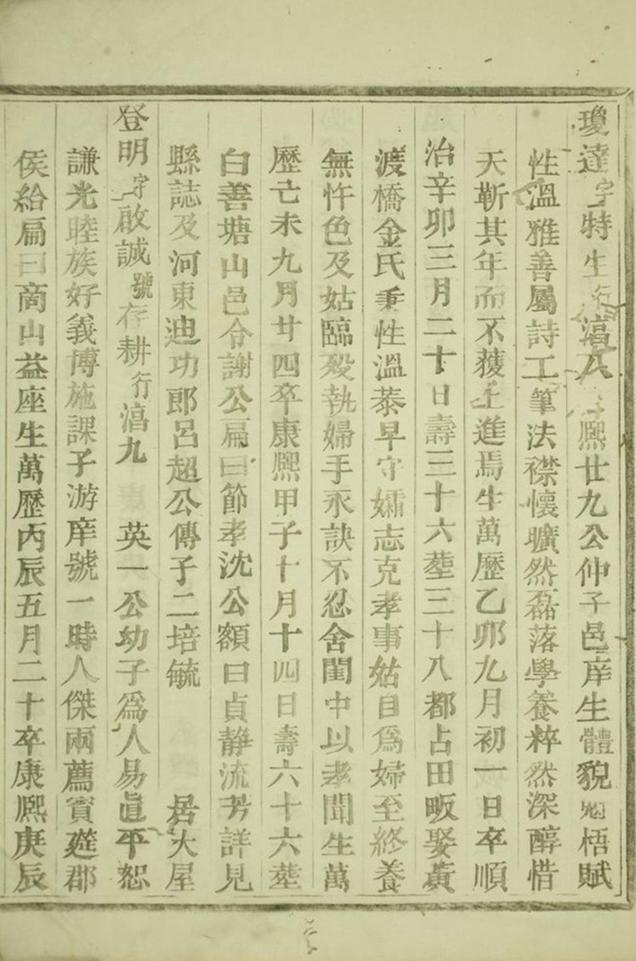 瓊達字特生行滈八熙廿九公仲子邑庠生體貌魁梧賦
性溫雅善屬詩工筆法襟懷曠然磊落學養粹然深醇惜
天靳其年而不獲上進焉生萬歷乙卯九月初一日卒順
治辛卯三月二十日壽三十六塟三十八都占田畈娶黃
渡橋金氏秉性溫恭早守孀志克孝事姑自爲婦至終養
無忤色及姑臨殁執婦手永訣不忍舍閨中以孝聞生萬
歷己未九月廿四卒康熙甲子十月十四日壽六十六塟
白善塘山邑令謝公扁曰節孝沈公額曰貞静流芳詳見
縣誌及河東迪功郎呂超公傳子二培毓 居大屋
登明字啟誠號存耕行滈九 英一公幼子爲人易直平恕
謙光睦族好義博施課子游庠號一時人傑兩薦賓筵郡
侯給扁曰啇山益座生萬歷丙辰五月二十卒康熙庚辰